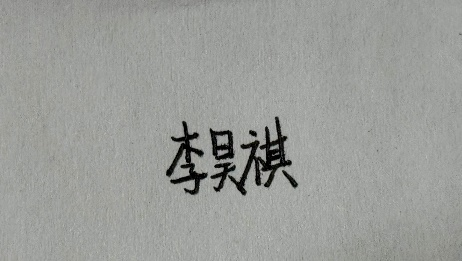 李昊祺